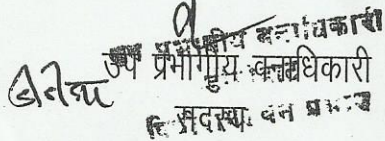 उप प्रभागीय वनाधिकारी
उप प्रभागीय वनाधिकारी
सदस्य वन